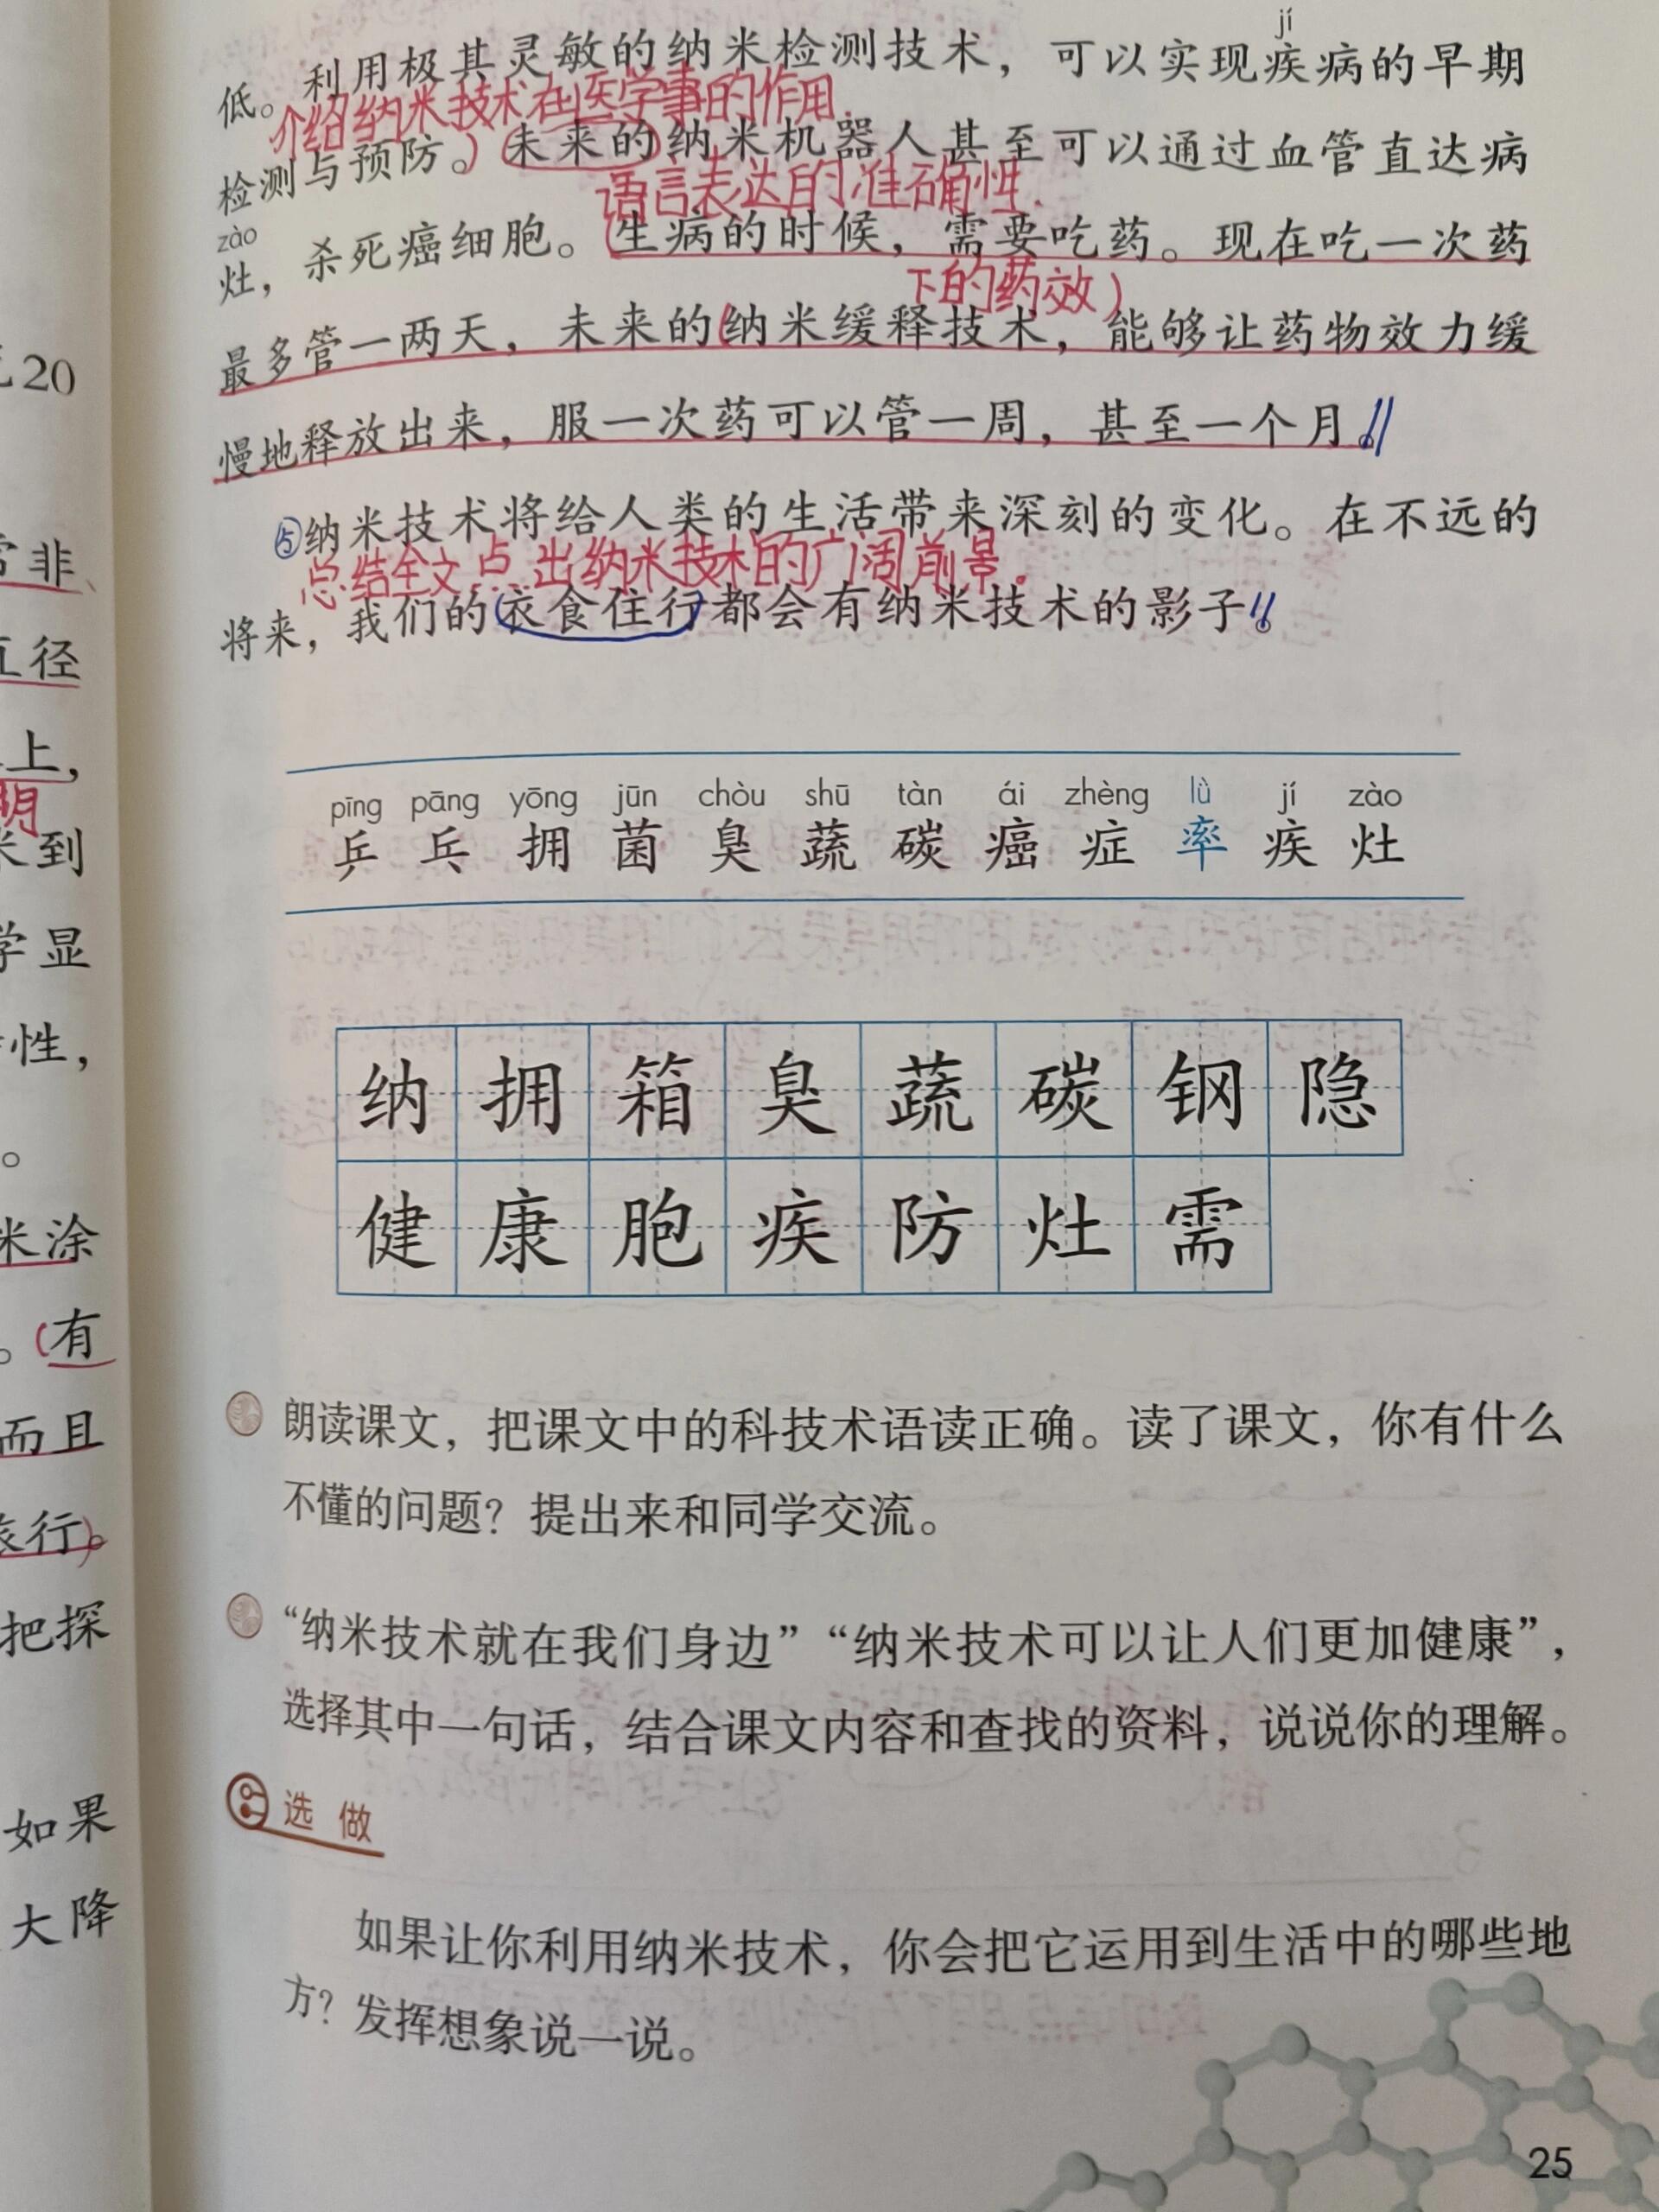 jí
低。利用极其灵敏的纳米检测技术，可以实现疾病的早期
介绍纳米技术在医学事的作用.
检测与预防。）（未来的）纳米机器人甚至可以通过血管直达病
语言表达的准确性.
zào
灶，杀死癌细胞。（生病的时候，需要吃药。现在吃一次药
下的药效）
最多管一两天，未来的（纳米缓释技术，能够让药物效力缓
慢地释放出来，服一次药可以管一周，甚至一个月。//
⑤纳米技术将给人类的生活带来深刻的变化。在不远的
总结全文.点出纳米技术的广阔前景。
将来，我们的衣食住行都会有纳米技术的影子。//
pīng pāng yōng jūn chòu shū tàn ái zhèng lǜ jí zào
乒 乓 拥 菌 臭 蔬 碳 癌 症 率 疾 灶
纳 拥 箱 臭 蔬 碳 钢 隐
健 康 胞 疾 防 灶 需
朗读课文，把课文中的科技术语读正确。读了课文，你有什么
不懂的问题？提出来和同学交流。
“纳米技术就在我们身边”“纳米技术可以让人们更加健康”，
选择其中一句话，结合课文内容和查找的资料，说说你的理解。
选做
如果让你利用纳米技术，你会把它运用到生活中的哪些地
方？发挥想象说一说。
25
20
常非、
直径
上，
明
米到
学显
性，
。
米涂
。（有
而且
旅行）。
把探
如果
大降